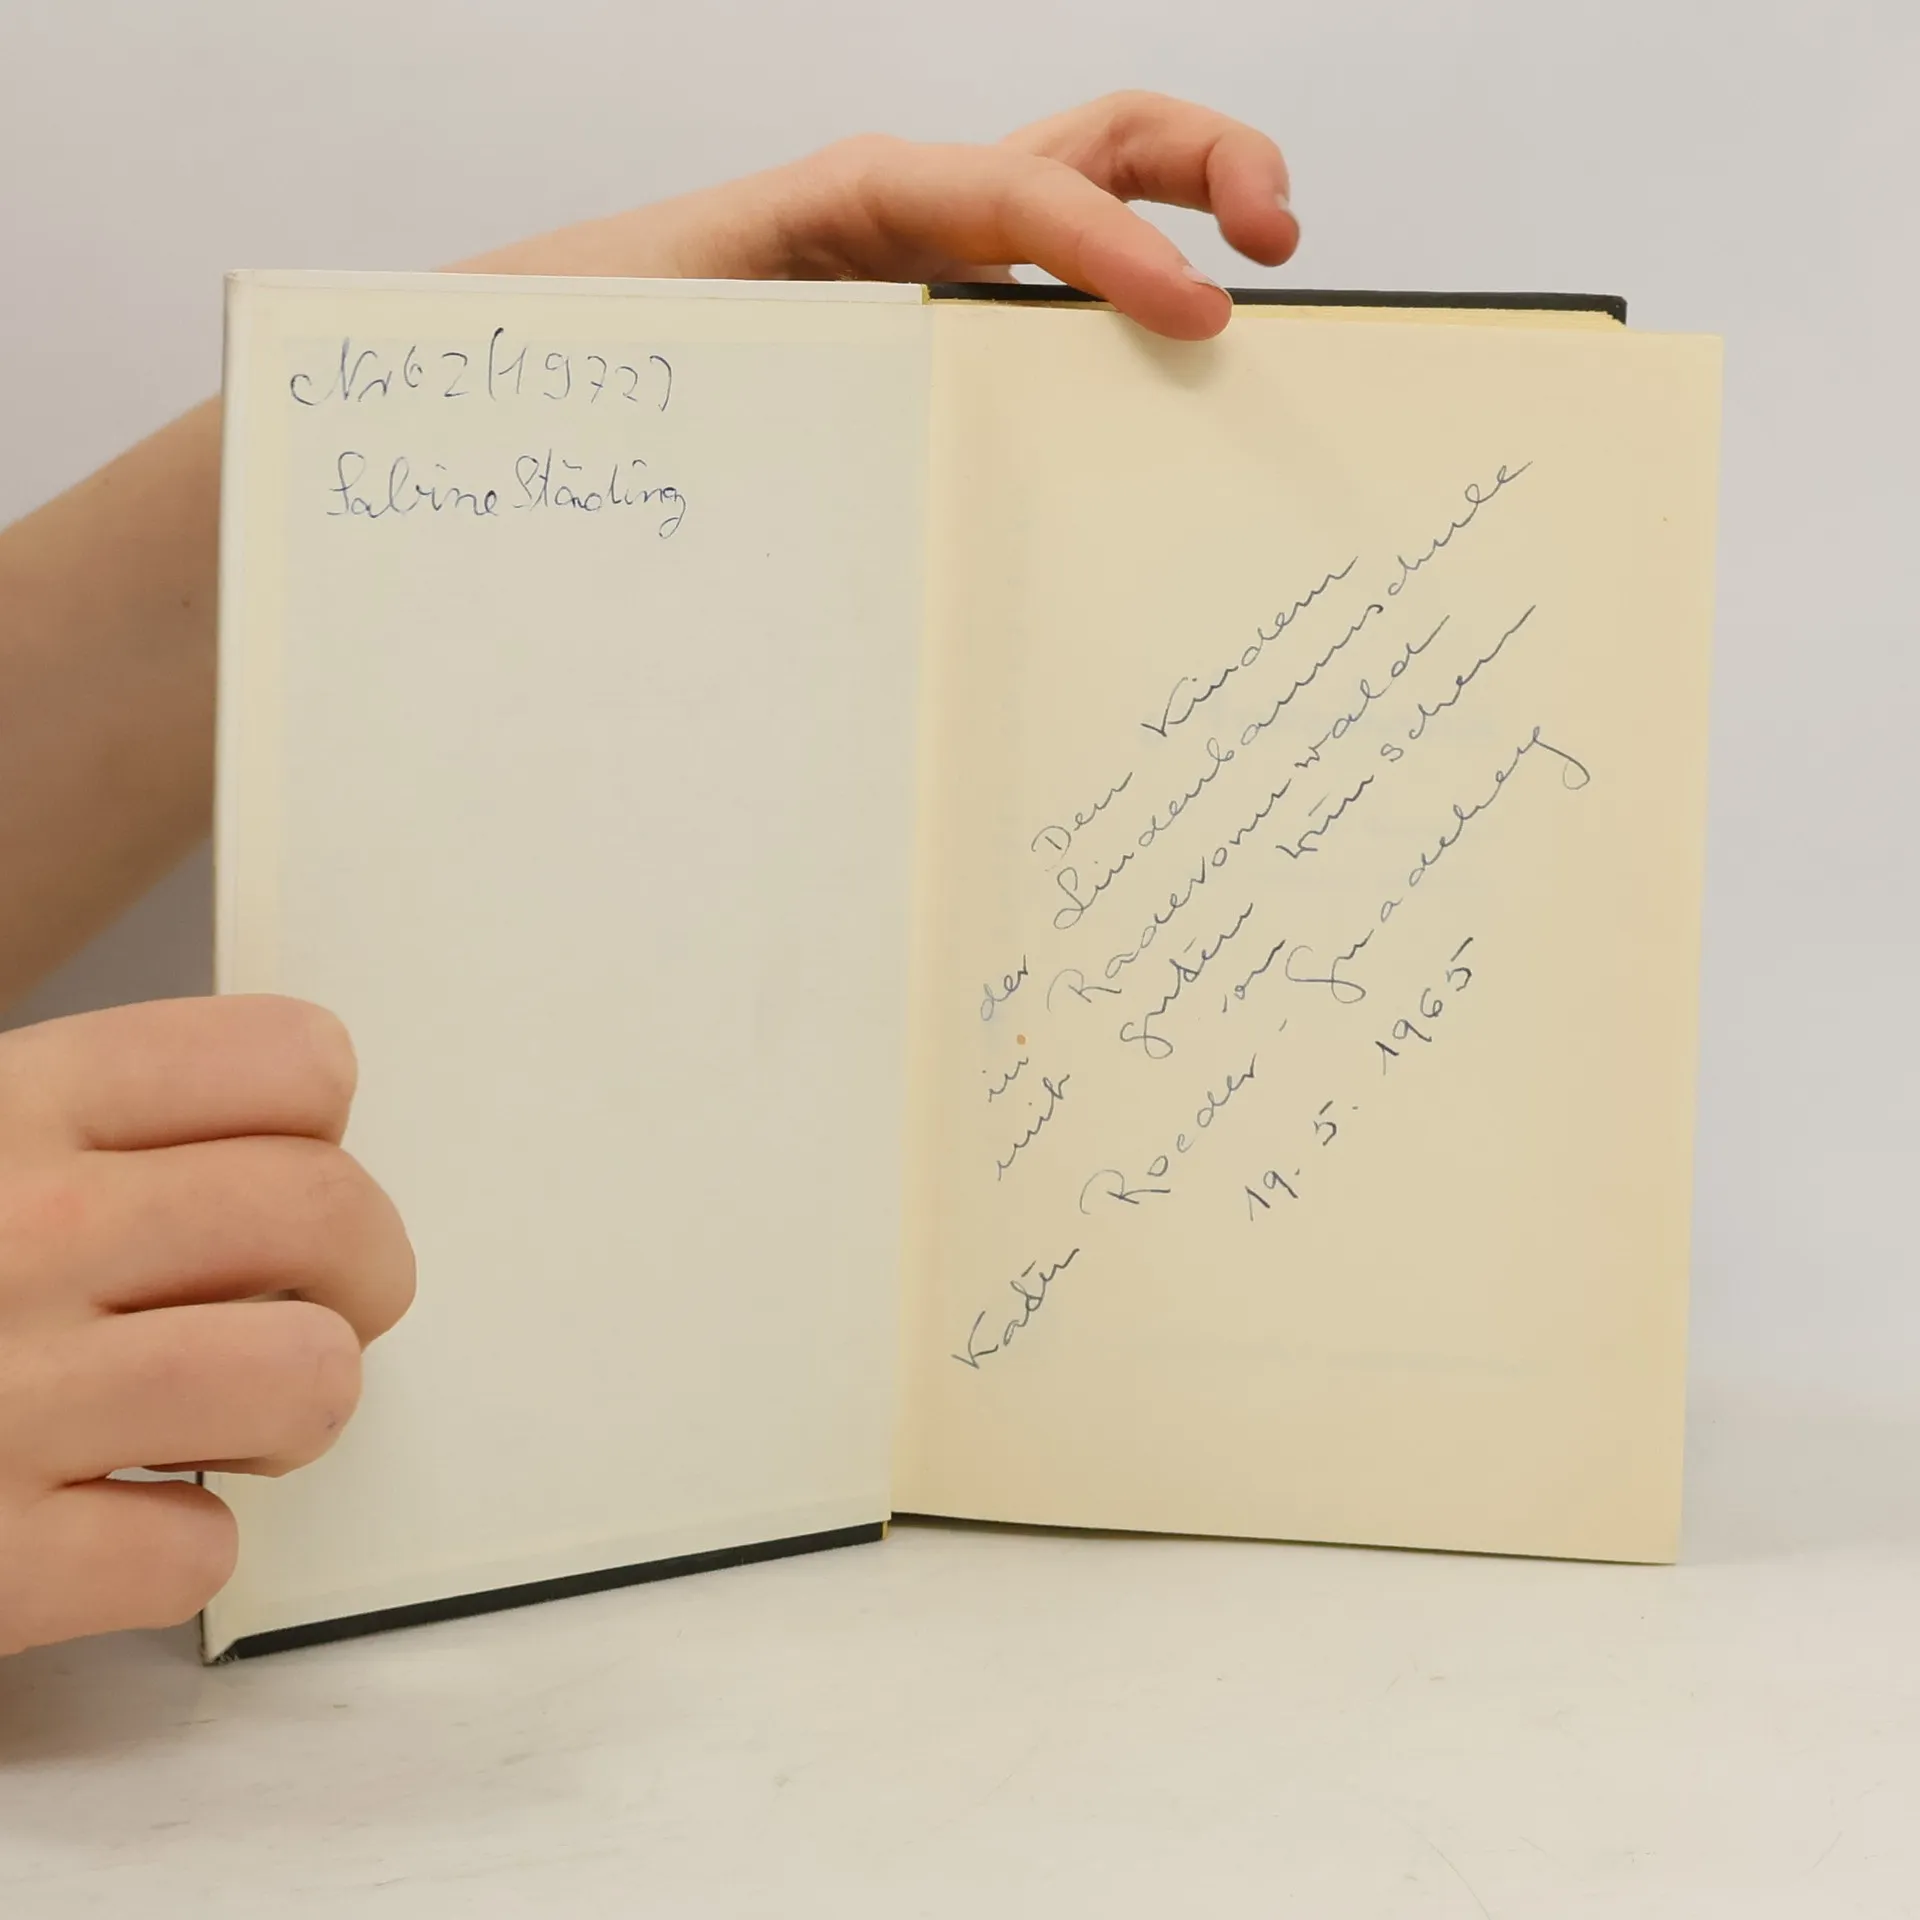 Nr 62 (1972)
Sabine Städing
Den Kindern
der Lindenbaumschule
in Radevormwald
mit guten Wünschen
von
Katrin Roeder-Gnadeberg
19. 5. 1965